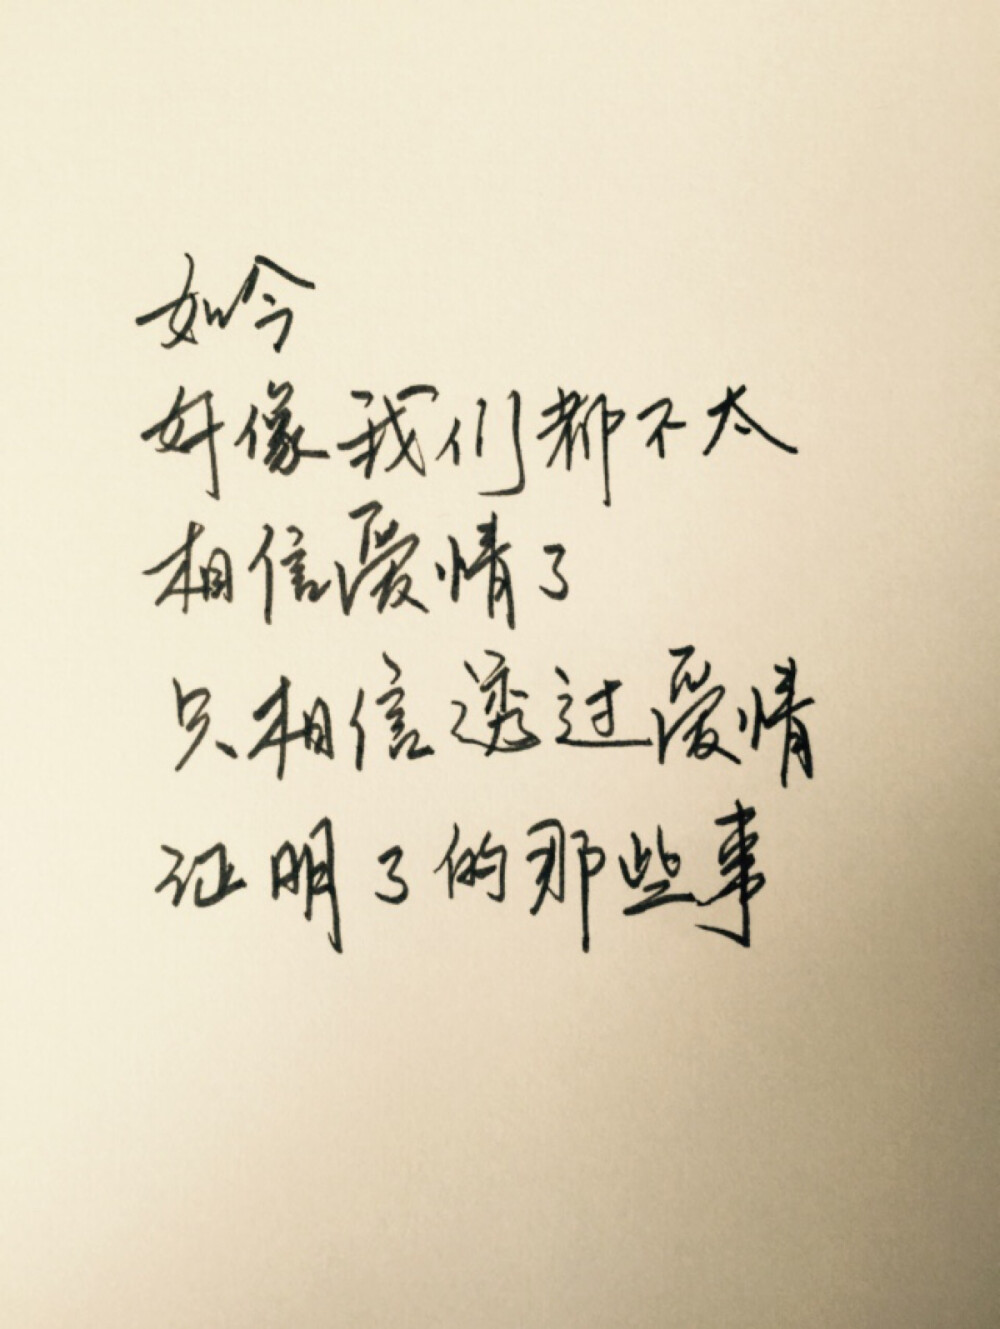 如今
好像我们都不太
相信爱情了
只相信透过爱情
证明了的那些事